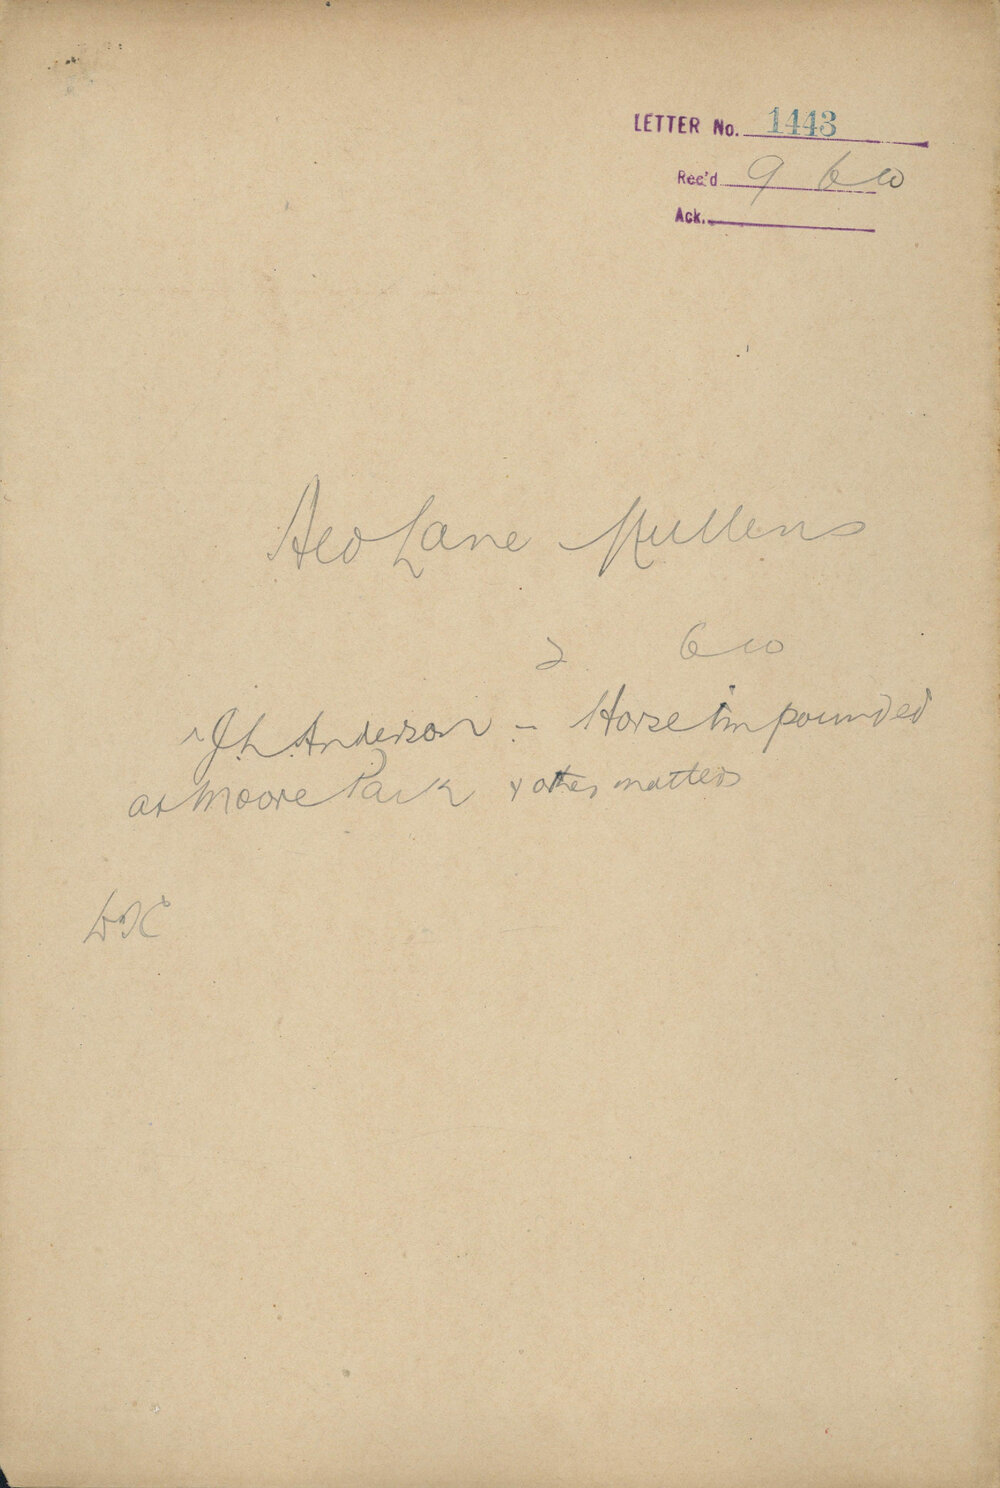 LETTER No. 1443
Rec'd 9 6 00
Ack.
Ald Lane Mullens
2 6 00
J L Anderson - Horse impounded
at Moore Park & other matters